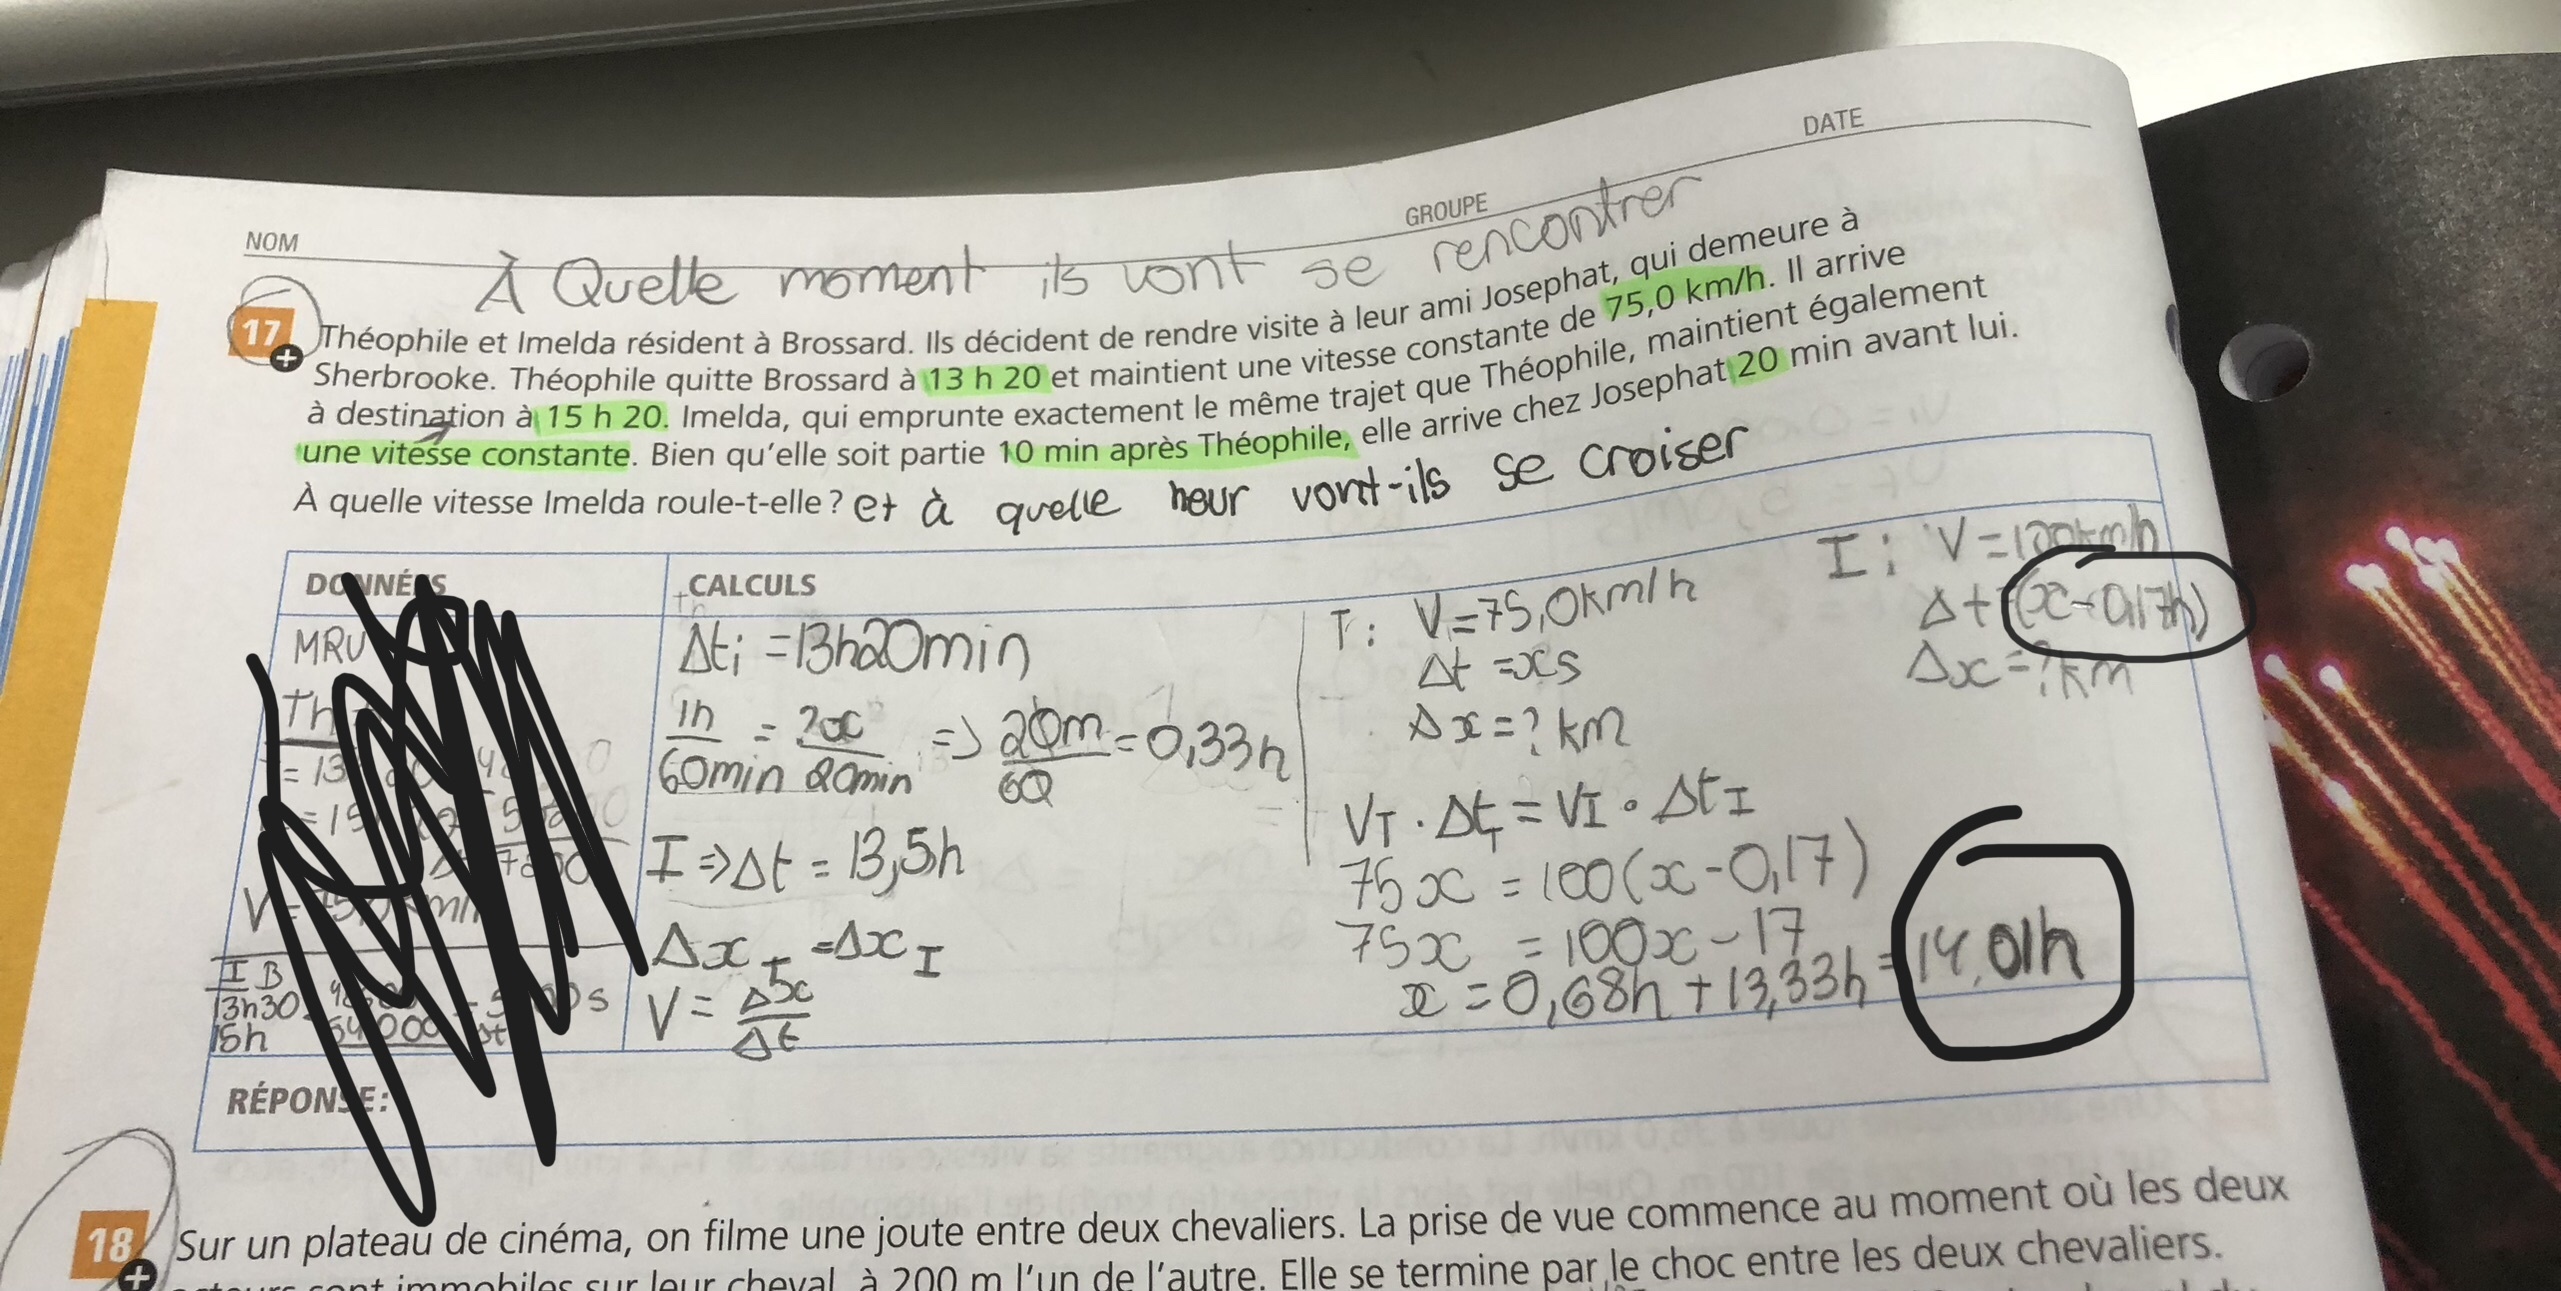 DATE
GROUPE
NOM
À Quelle moment ils vont se rencontrer
17 Théophile et Imelda résident à Brossard. Ils décident de rendre visite à leur ami Josephat, qui demeure à
+ Sherbrooke. Théophile quitte Brossard à 13 h 20 et maintient une vitesse constante de 75,0 km/h. Il arrive
à destination à 15 h 20. Imelda, qui emprunte exactement le même trajet que Théophile, maintient également
une vitesse constante. Bien qu'elle soit partie 10 min après Théophile, elle arrive chez Josephat 20 min avant lui.
À quelle vitesse Imelda roule-t-elle ? et à quelle heur vont-ils se croiser
DONNÉES
MRU
Th
= 13
= 15
V =
I B
13h30
15h
54000
CALCULS
Δti = 13h20min
1h/60min = ?x/20min => 20m/60 = 0,33h
I => Δt = 13,5h
Δx T = Δx I
V = Δx/Δt
T: V = 75,0km/h
Δt = xs
Δx = ? km
I: V = 100km/h
Δt (x - 0,17h)
Δx = ? km
VT · ΔtT = VI · ΔtI
75x = 100(x - 0,17)
75x = 100x - 17
x = 0,68h + 13,33h = 14,01h
RÉPONSE :
18 Sur un plateau de cinéma, on filme une joute entre deux chevaliers. La prise de vue commence au moment où les deux
+ acteurs sont immobiles sur leur cheval, à 200 m l'un de l'autre. Elle se termine par le choc entre les deux chevaliers.